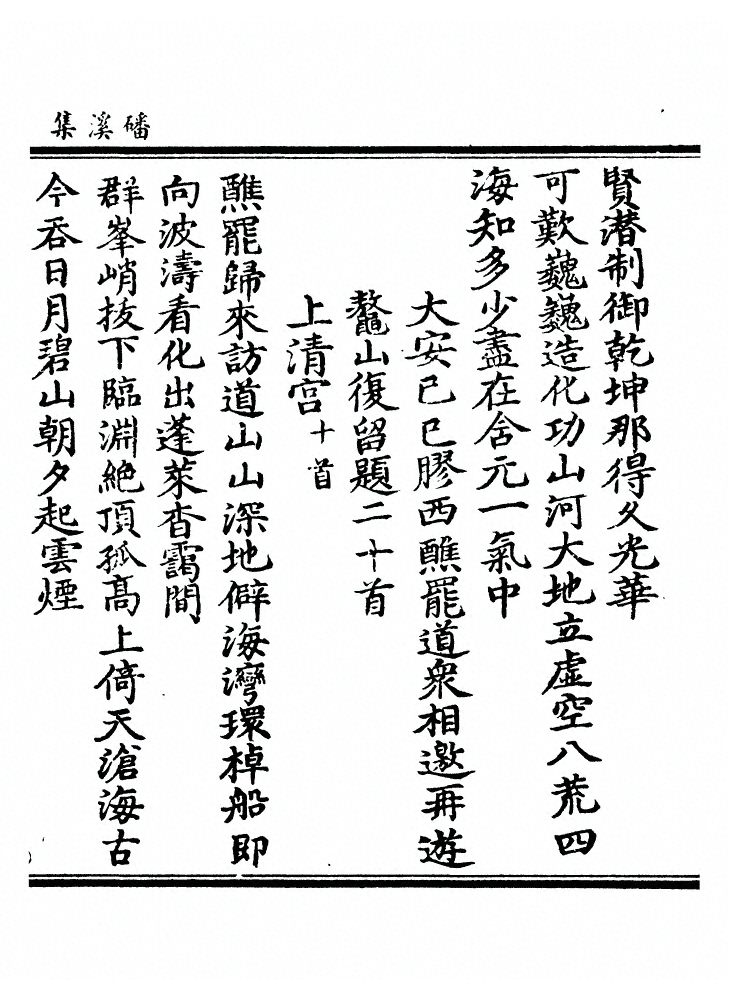 磻溪集
賢潜制御乾坤那得久光華
可歎巍巍造化功山河大地立虛空八荒四
海知多少盡在含元一氣中
大安己巳膠西醮罷道衆相邀再遊
鼇山復留題二十首
上清宫十首
醮罷歸來訪道山山深地僻海灣環棹船即
向波濤看化出蓬萊杳靄間
群峯峭拔下臨淵絶頂孤高上倚天滄海古
今吞日月碧山朝夕起雲煙